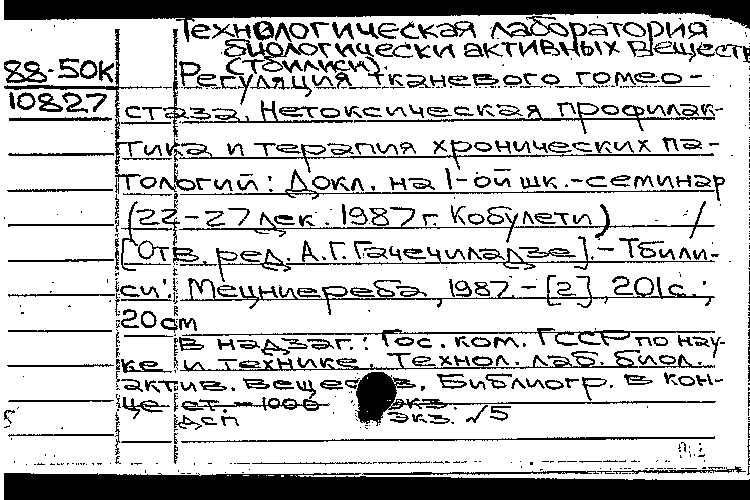 Технологическая лаборатория
биологически активных веществ
(Тбилиси).
88-50К
Регуляция тканевого гомео-
10827
стаза. Нетоксическая профилак-
тика и терапия хронических па-
тологий: Докл. на 1-ой шк.-семинар
(22-27 дек. 1987 г. Кобулети) /
[Отв. ред. А.Г. Гачечиладзе]. - Тбили-
си: Мецниереба, 1987. - [2], 201 с.;
20 см
В надзаг.: Гос. ком. ГССР по нау-
ке и технике. Технол. лаб. биол.
актив. веществ. Библиогр. в кон-
це ст. - 1000 экз.
ДСП экз. √5